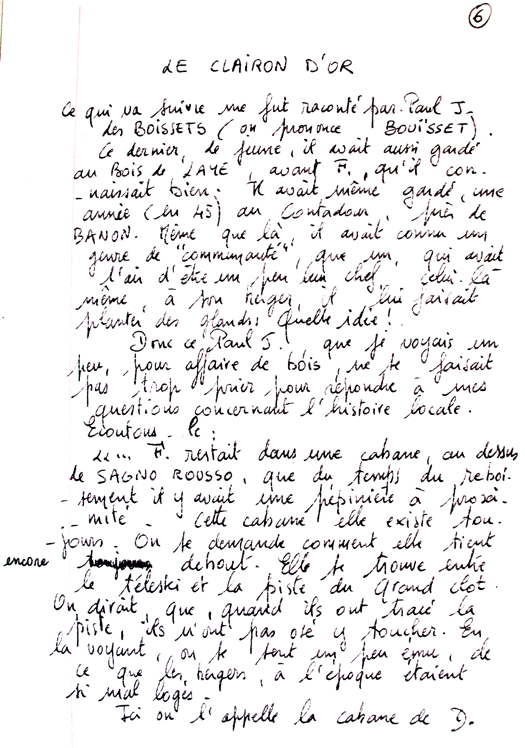 6
LE CLAIRON D'OR
Ce qui va suivre me fut raconté par Paul J.
des BOISSETS (on prononce BOUISSET).
Ce dernier, de jeune, il avait aussi gardé
au Bois de LAYE, avant F., qu'il con-
-naissait bien. Il avait même gardé, une
année (en 45) au Contadour, près de
BANON. Même que là, il avait connu un
genre de "communauté", que un, qui avait
l'air d'être un peu leur chef, celui-là
même, à son berger, il lui faisait
planter des glands! Quelle idée!
Donc ce Paul J., que je voyais un
peu, pour affaire de bois, ne se faisait
pas trop prier pour répondre à mes
questions concernant l'histoire locale.
Ecoutons-le:
"... F. restait dans une cabane, au dessus
de SAGNO ROUSSO, que du temps du reboi-
-sement il y avait une pépinière à proxi-
-mité. Cette cabane elle existe tou-
-jours. On se demande comment elle tient
encore debout. Elle se trouve entre
le téleski et la piste du Grand Clot.
On dirait, que, quand ils ont tracé la
piste, ils n'ont pas osé y toucher. En
la voyant, on se sent un peu ému, de
ce que les bergers, à l'époque étaient
si mal logés.
Ici on l'appelle la cabane de D.